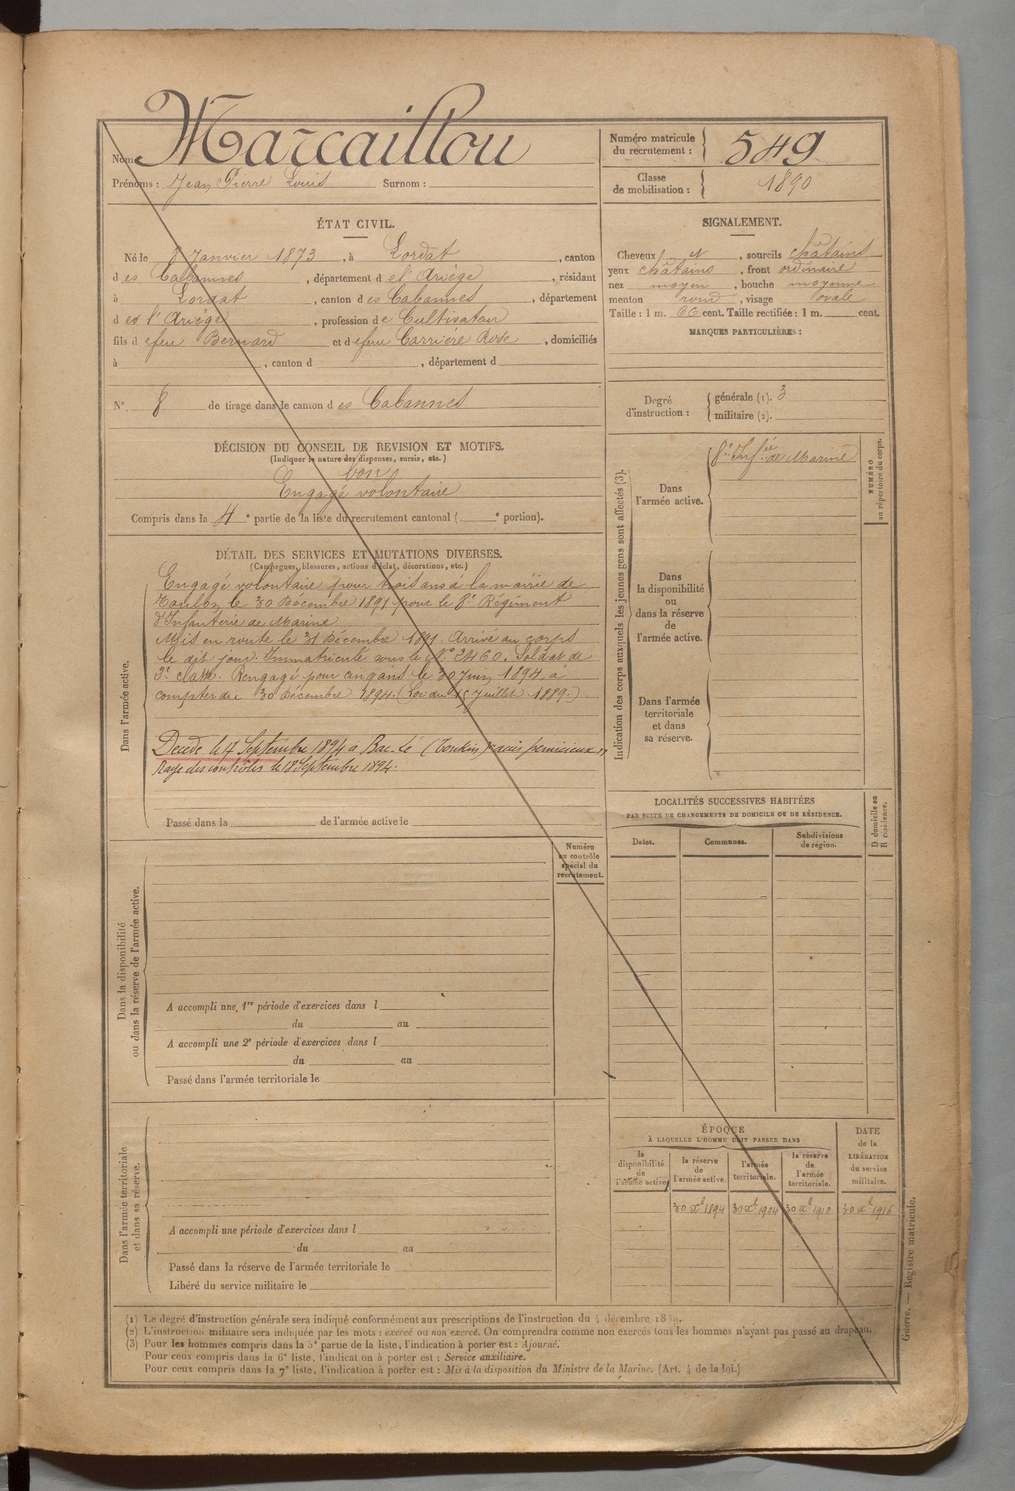 Nom Marcaillou
Prénoms : Jean Pierre Louis Surnom :
Numéro matricule du recrutement : 549
Classe de mobilisation : 1890
ÉTAT CIVIL.
Né le 8 Janvier 1873, à Lordat, canton
d es Cabannes, département d e l'Ariège, résidant
à Lordat, canton d es Cabannes, département
d e l'Ariège, profession de Cultivateur
fils d efeu Bernard et d efeue Carrière Rose, domiciliés
à , canton d , département d
N° 8 de tirage dans le canton d es Cabannes
SIGNALEMENT.
Cheveux et , sourcils châtains
yeux châtains, front ordinaire
nez moyen, bouche moyenne
menton rond, visage ovale
Taille : 1 m. 66 cent. Taille rectifiée : 1 m. cent.
MARQUES PARTICULIÈRES :
Degré d'instruction :
générale (1). 3
militaire (2).
DÉCISION DU CONSEIL DE REVISION ET MOTIFS.
(Indiquer la nature des dispenses, sursis, etc.)
bon
Engagé volontaire
Compris dans la 4e partie de la liste du recrutement cantonal ( e portion).
DÉTAIL DES SERVICES ET MUTATIONS DIVERSES.
(Campagnes, blessures, actions d'éclat, décorations, etc.)
Dans l'armée active.
Engagé volontaire pour trois ans à la mairie de
Toulon le 30 Décembre 1891 pour le 8e Régiment
d'Infanterie de Marine
Mis en route le 31 Décembre 1891 Arrivé au corps
le dit jour. Immatriculé sous le N° 2460. Soldat de
2e classe. Rengagé pour cinq ans le 30 Juin 1894 à
compter du 30 Décembre 1894. (Loi du 15 Juillet 1889.)
Décédé le 4 Septembre 1894 à Bac-lé (Tonkin) accès pernicieux
Rayé des contrôles le 18 Septembre 1894.
Passé dans la de l'armée active le
Indication des corps auxquels les jeunes gens sont affectés (3).
Dans l'armée active.
8e Inf.ie de Marine
NUMÉRO au répertoire du corps.
Dans la disponibilité ou dans la réserve de l'armée active.
Dans l'armée territoriale et dans sa réserve.
LOCALITÉS SUCCESSIVES HABITÉES
PAR SUITE DE CHANGEMENTS DE DOMICILE OU DE RÉSIDENCE.
Dates.
Communes.
Subdivisions de région.
D domicile ou R résidence.
Numéro au contrôle spécial du recrutement.
Dans la disponibilité ou dans la réserve de l'armée active.
A accompli une 1re période d'exercices dans l
du au
A accompli une 2e période d'exercices dans l
du au
Passé dans l'armée territoriale le
Dans l'armée territoriale et dans sa réserve.
A accompli une période d'exercices dans l
du au
Passé dans la réserve de l'armée territoriale le
Libéré du service militaire le
ÉPOQUE
À LAQUELLE L'HOMME DOIT PASSER DANS
la disponibilité de l'armée active.
la réserve de l'armée active.
l'armée territoriale.
la réserve de l'armée territoriale.
DATE de la LIBÉRATION du service militaire.
30 Xe 1894 30 Xe 1904 30 Xe 1910 30 Xe 1916
(1) Le degré d'instruction générale sera indiqué conformément aux prescriptions de l'instruction du 4 décembre 1889.
(2) L'instruction militaire sera indiquée par les mots : exercé ou non exercé. On comprendra comme non exercés tous les hommes n'ayant pas passé au drapeau.
(3) Pour les hommes compris dans la 5e partie de la liste, l'indication à porter est : Ajourné.
Pour ceux compris dans la 6e liste, l'indication à porter est : Service auxiliaire.
Pour ceux compris dans la 7e liste, l'indication à porter est : Mis à la disposition du Ministre de la Marine. (Art. 4 de la loi.)
Guerre. — Registre matricule.